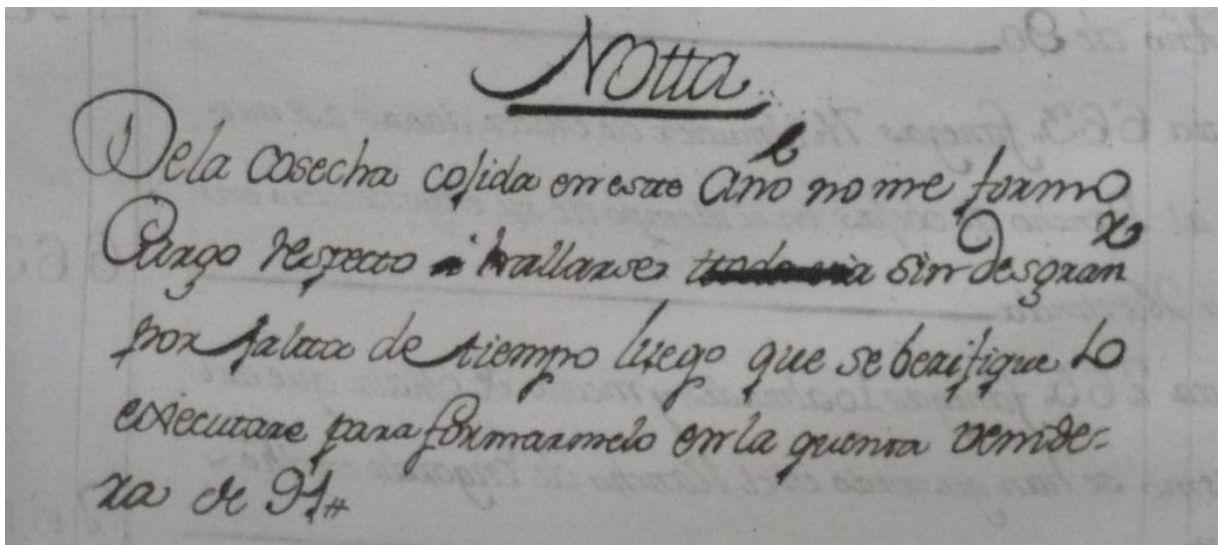 Notta
Dela cosecha cojida eneste Año no me formo
Cargo respecto a hallarse sin Desgranr
por falta de tiempo luego que se berifique lo
executare para formarmelo en la quenta venide-
ra de 91